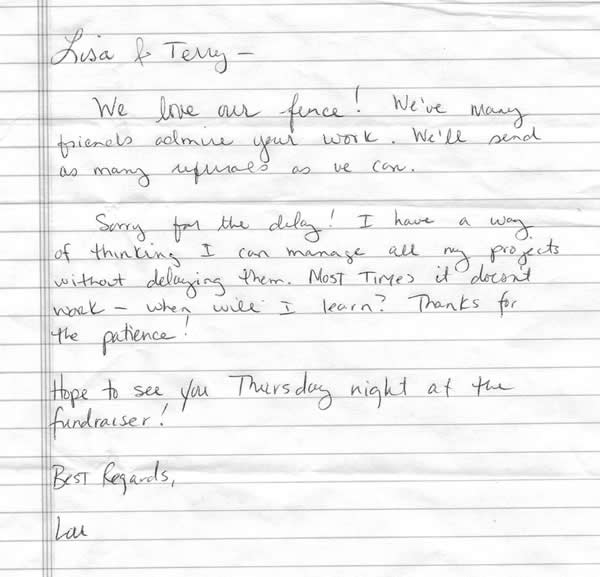 Lisa & Terry —
We love our fence! We've many
friends admire your work. We'll send
as many referrals as we can.
Sorry for the delay! I have a way
of thinking I can manage all my projects
without delaying them. Most Times it doesn't
work — when will I learn? Thanks for
the patience!
Hope to see you Thursday night at the
fundraiser!
Best Regards,